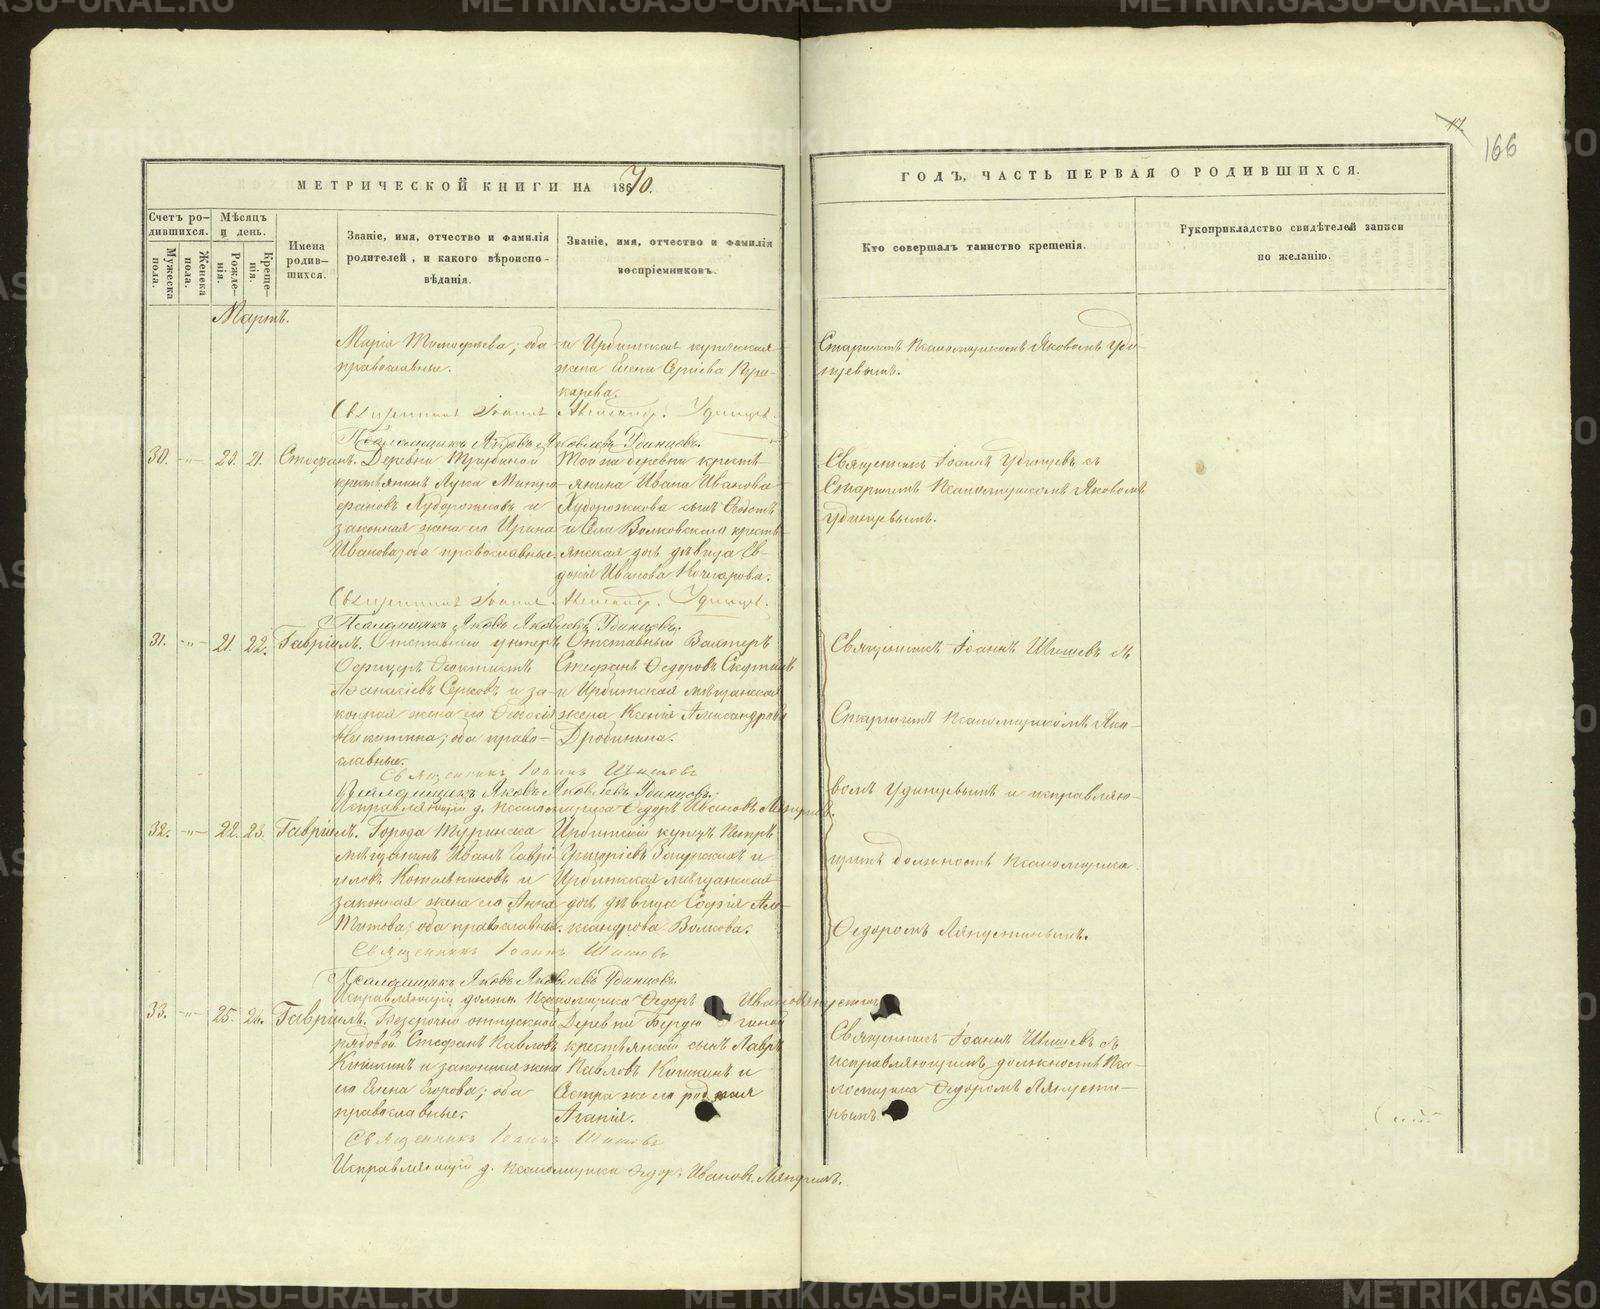 17.
166
МЕТРИЧЕСКОЙ КНИГИ НА 1870.
ГОДЪ, ЧАСТЬ ПЕРВАЯ О РОДИВШИХСЯ.
Счетъ родившихся.
Мужеска пола.
Женска пола.
Мѣсяцъ и день.
Рожденія.
Крещенія.
Имена родившихся.
Званіе, имя, отчество и фамилія родителей, и какого вѣроисповѣданія.
Званіе, имя, отчество и фамилія воспріемниковъ.
Кто совершалъ таинство крещенія.
Рукоприкладство свидѣтелей записи по желанію.
Мартъ.
Марія Тимофѣева; оба
православные.
и Ирбитская купеческая
жена Елена Сергіева
Старшимъ Псаломщикомъ Яковомъ Уди-
нцевымъ.
Священникъ Іоаннъ Александр. Удинцев.
Псаломщикъ Яковъ Яковлевъ Удинцовъ.
30. -"- 20. 21. Стефанъ.
Деревни
крестьянинъ Лука Митро-
фановъ Худорожковъ и
законная жена его Ирина
Иванова; оба православные.
Той же деревни кресть-
янина Ивана Иванова
Худорожкова сынъ
и Села Волковскаго кресть-
янская дочь дѣвица Ев-
докія Иванова Кочнарова.
Священникъ Іоаннъ Удинцевъ съ
Старшимъ Псаломщикомъ Яковомъ
Удинцевымъ.
Священникъ Іоаннъ Александр. Удинцев.
Псаломщикъ Яковъ Яковлевъ Удинцовъ.
31. -"- 21. 22. Гавріилъ.
Отставный унтеръ
Офицеръ Феоктистъ
Афанасіевъ Серковъ и за-
конная жена его
Никитина; оба право-
славные.
Отставный Вахтеръ
Стефанъ Федоровъ
и Ирбитская мѣщанская
жена Ксенія Александрова
Дробинина.
Священникъ Іоаннъ Шишевъ съ
Старшимъ псаломщикомъ Яко-
вомъ Удинцевымъ и исправляю-
щимъ должность Псаломщика
Федоромъ Ляпустинымъ.
Священникъ Іоаннъ Шишевъ
Псаломщикъ Яковъ Яковлевъ Удинцовъ.
Исправляющій д. Псаломщика Федоръ Ивановъ
32. -"- 22. 23. Гавріилъ.
Города Туринска
мѣщанинъ Иванъ Гаврі-
иловъ Котельниковъ и
законная жена его Анна
Титова; оба православные.
Ирбитскій купецъ Петръ
Григоріевъ
Ирбитская мѣщанская
дочь, дѣвица Софія Але-
ксандрова Волкова.
Священникъ Іоаннъ Шишевъ
Псаломщикъ Яковъ Яковлевъ Удинцовъ
Исправляющій должн. Псаломщика Федоръ Иванов
33. -"- 25. 26. Гавріилъ.
Безсрочно отпускной
рядовой Стефанъ Павловъ
Кишкинъ и законная жена
его Елена Егорова; оба
православные.
Деревни Бердюгиной
крестьянскій сынъ Лавръ
Павловъ Кишкинъ и
Сестра же его родная
Агапія.
Священникъ Іоаннъ Шишевъ съ
исправляющимъ должность Пса-
ломщика Федоромъ Ляпусти-
нымъ.
Священникъ Іоаннъ Шишевъ
Исправляющій д. Псаломщика Федор. Иванов.
METRIKI.GASO-URAL.RU